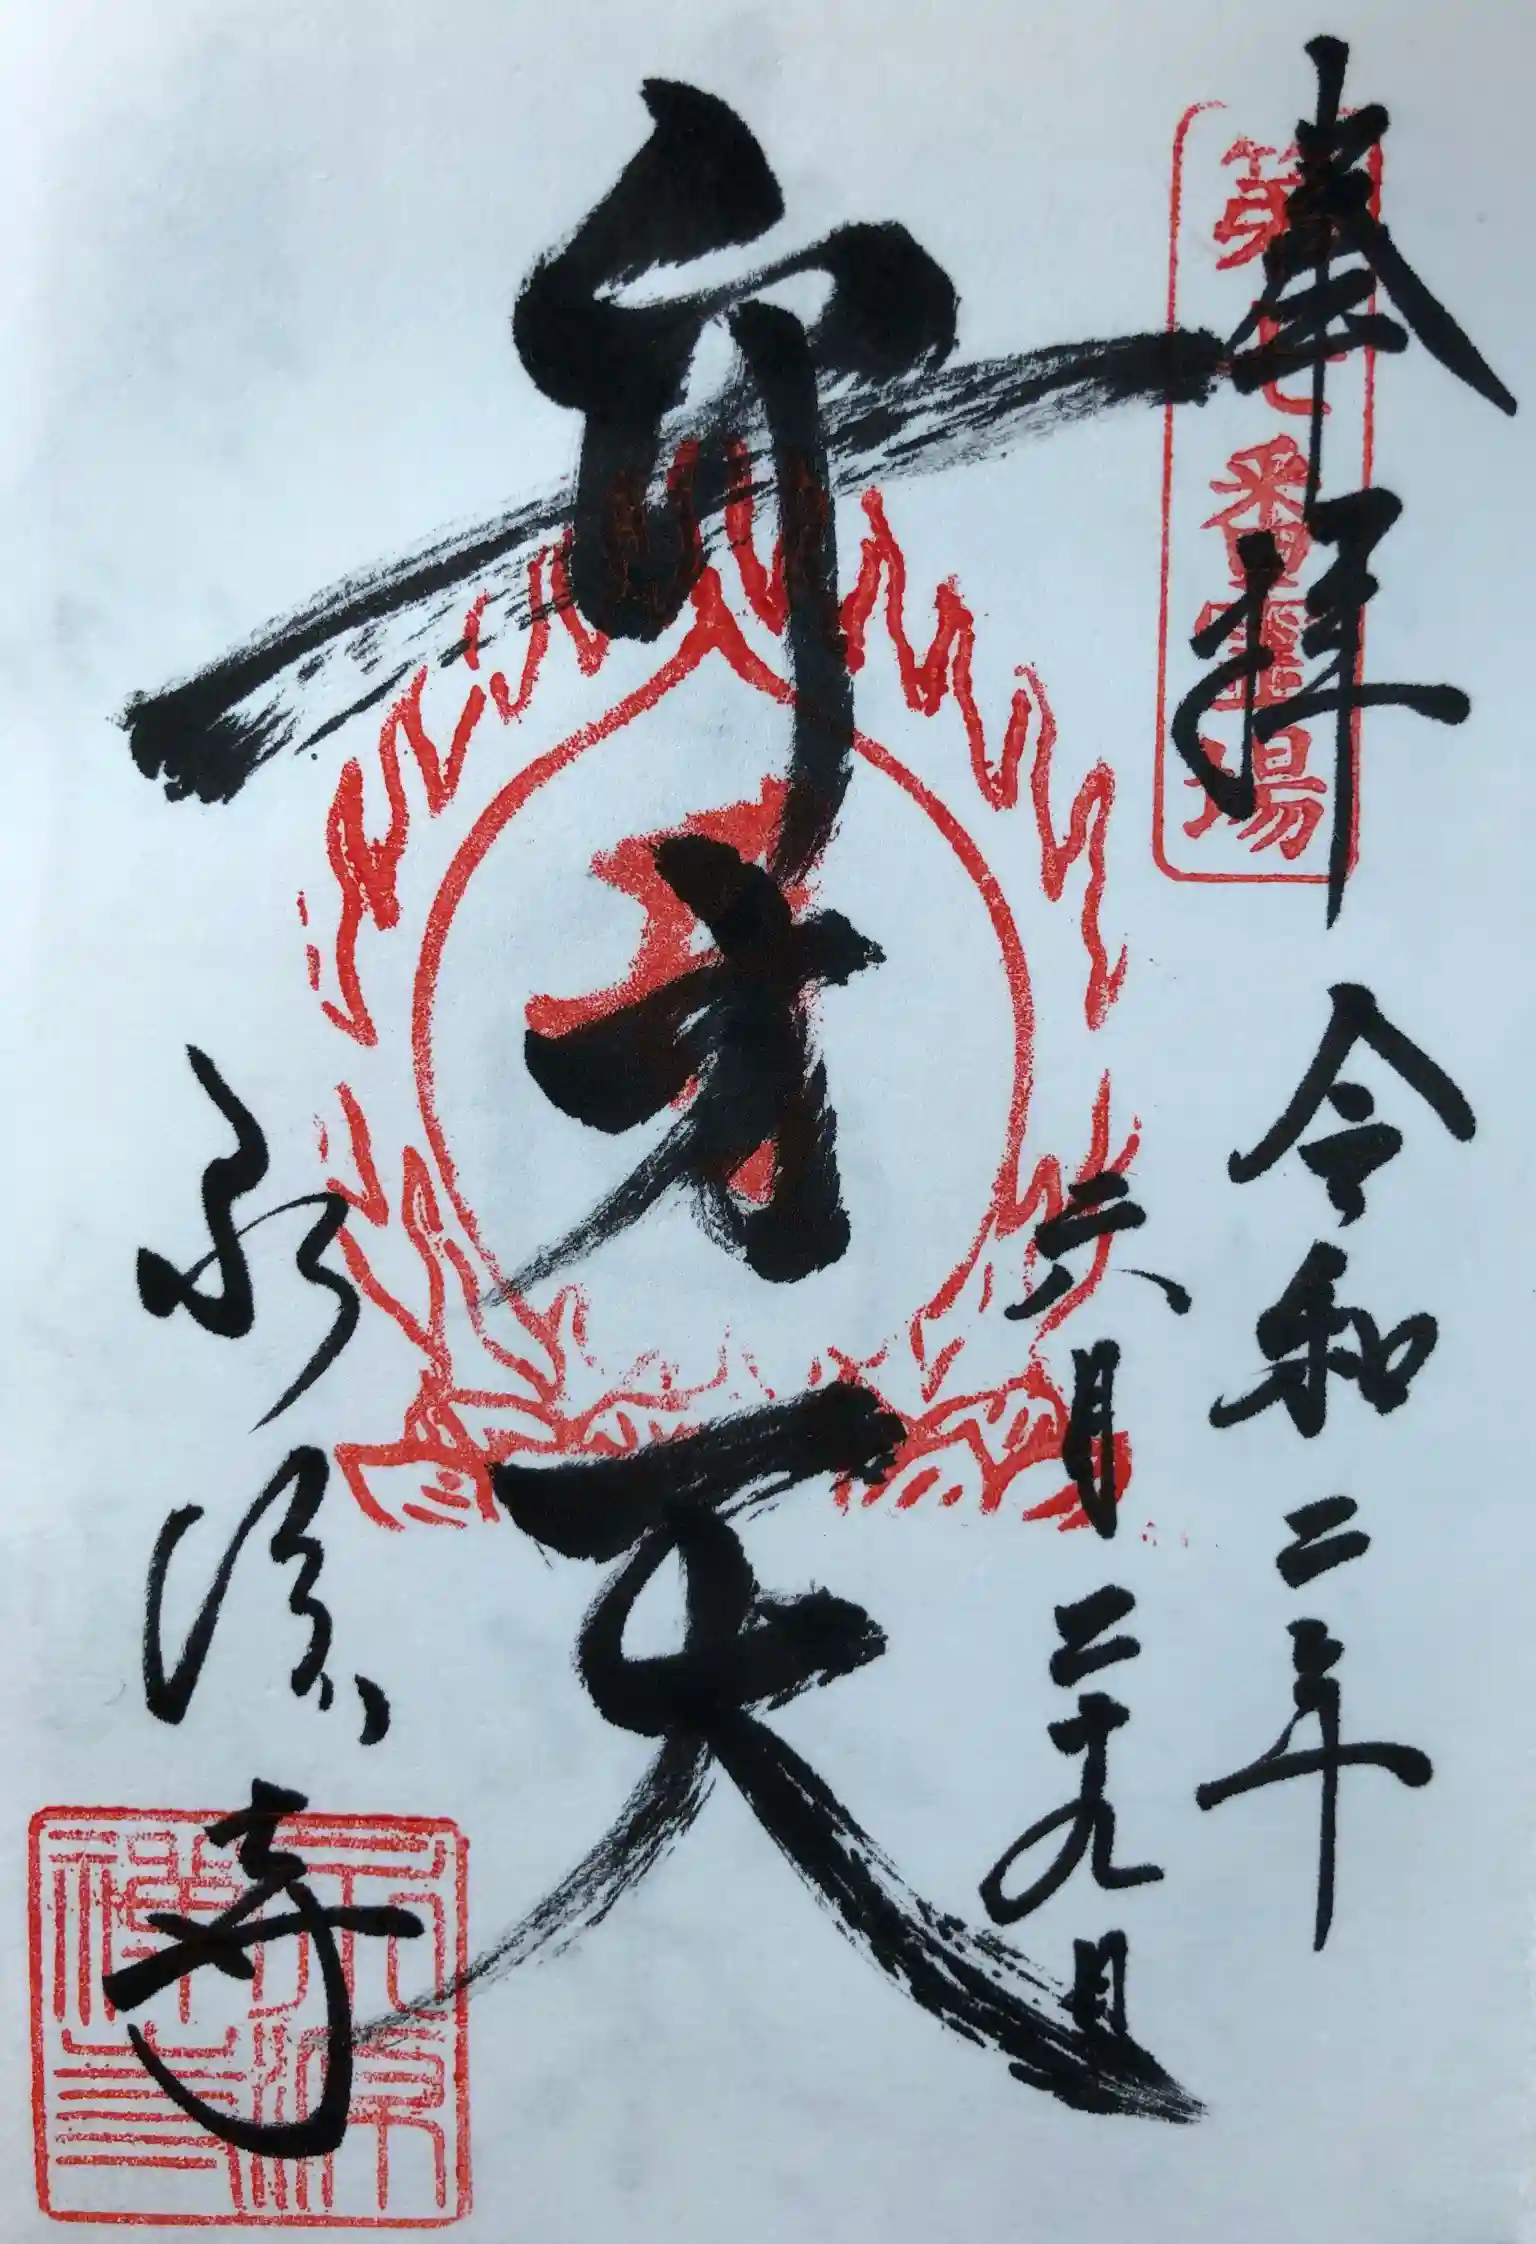 奉拝 令和二年
第七番霊場
六月二十九日
弁才天
永源寺